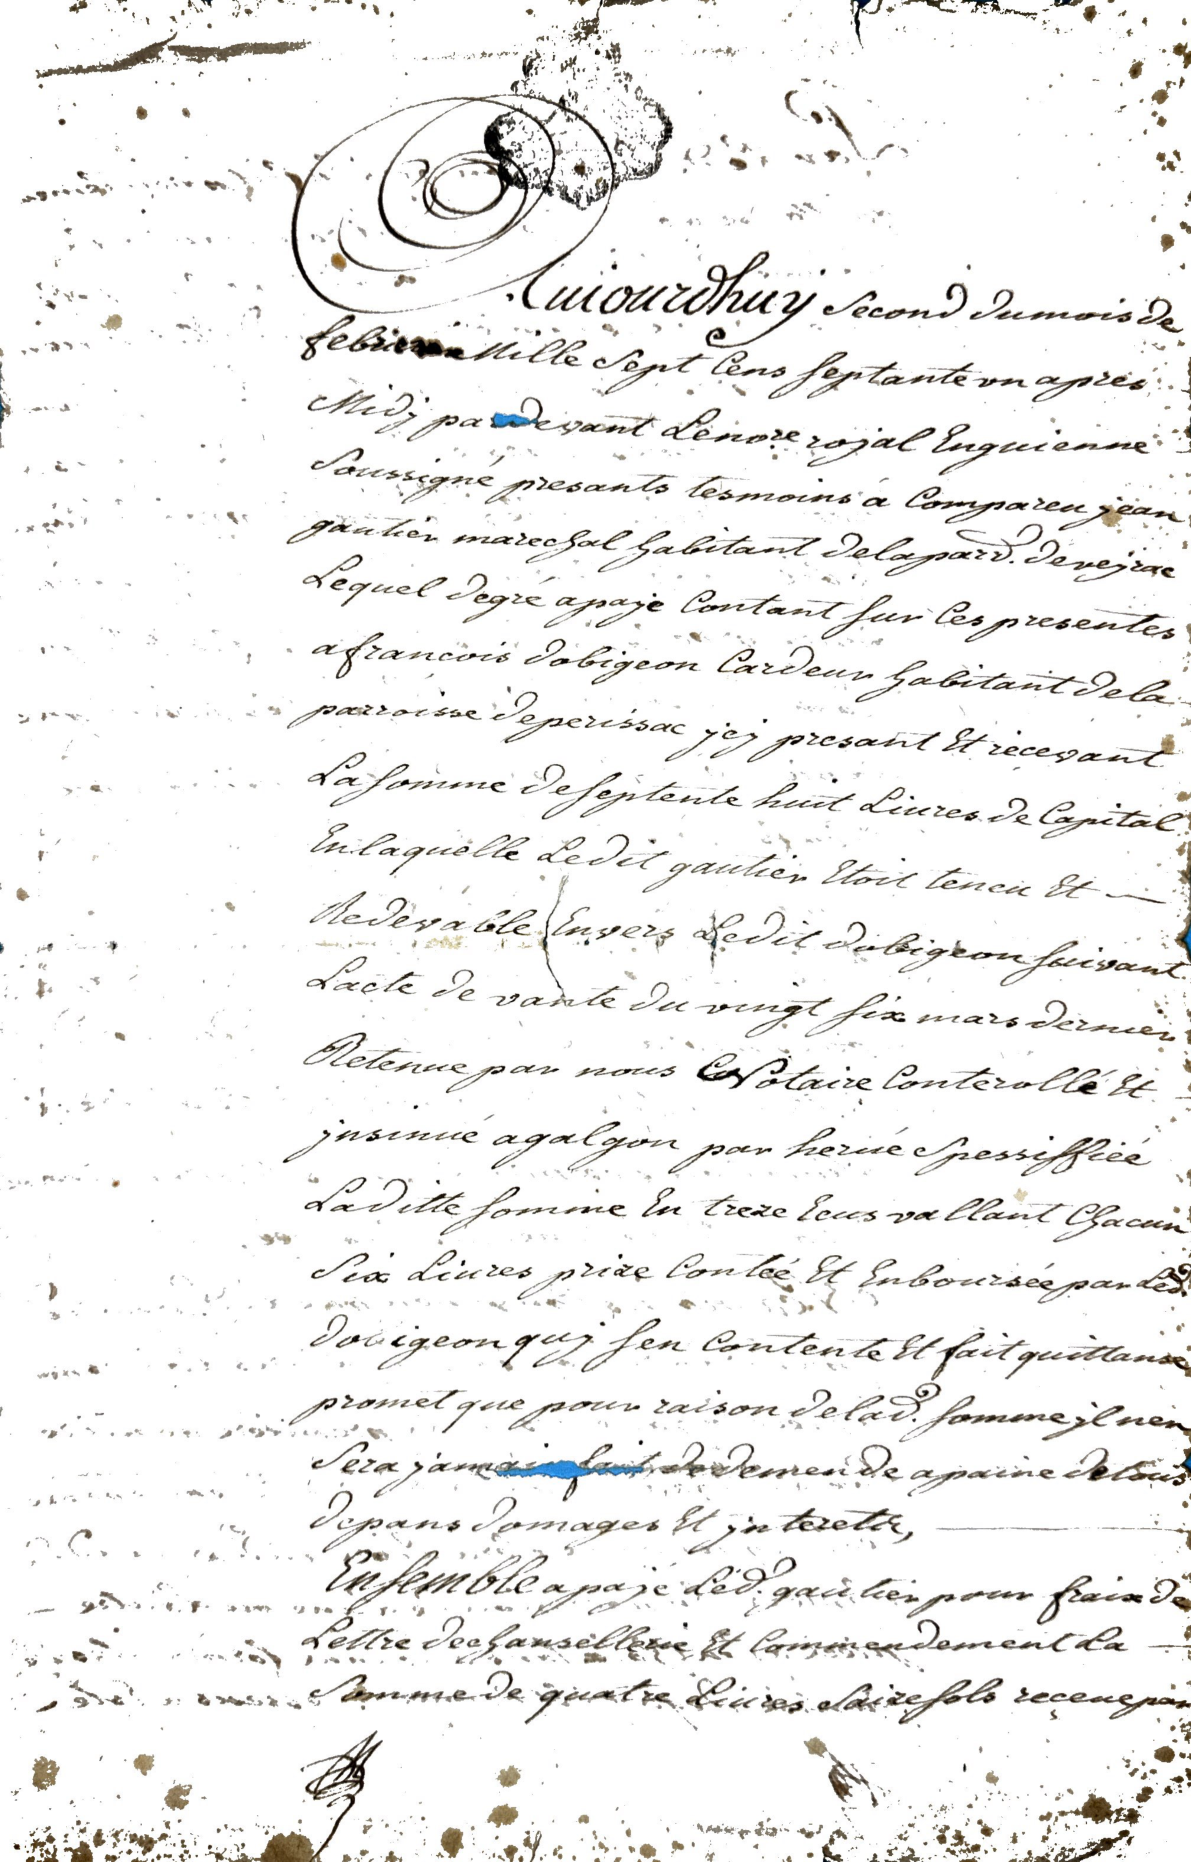 Aujourdhuy second du mois de
febrier Mille Sept Cens septante un apres
Midy pardevant Le nore royal Enguienne
Soussigné presants tesmoins a Compareu jean
gautier marechal habitant delaparr. deveyrac
Lequel degré apayé Contant sur Ces presentes
afrancois dobigeon Cardeur habitant dela
parroisse deperissac jcy presant Et recevant
La somme deseptente huit Livres de Capital
Enlaquelle Ledit gautier Etoit teneu Et
Redevable Envers Ledit dobigeon suivant
Lacte de vante du vingt six mars dernier
Retenue par nous Notaire Conterollé Et
jnsinué agalgon par hervé Spessiffiéé
Laditte somme En treze Ecus vallant Chacun
Six Livres prize Contéé Et Enboursée par Led.
dobigeon quy sen Contente Et fait quittanse
promet que pour raison delad. somme jl nen
Sera jamais fait de demende apaine detous
depans domages Et jnterets,
Ensemble apayé Led. gautier pour fraix de
Lettre dechansellerie Et Commendement La
Somme de quatre Livres Saize sols receue par